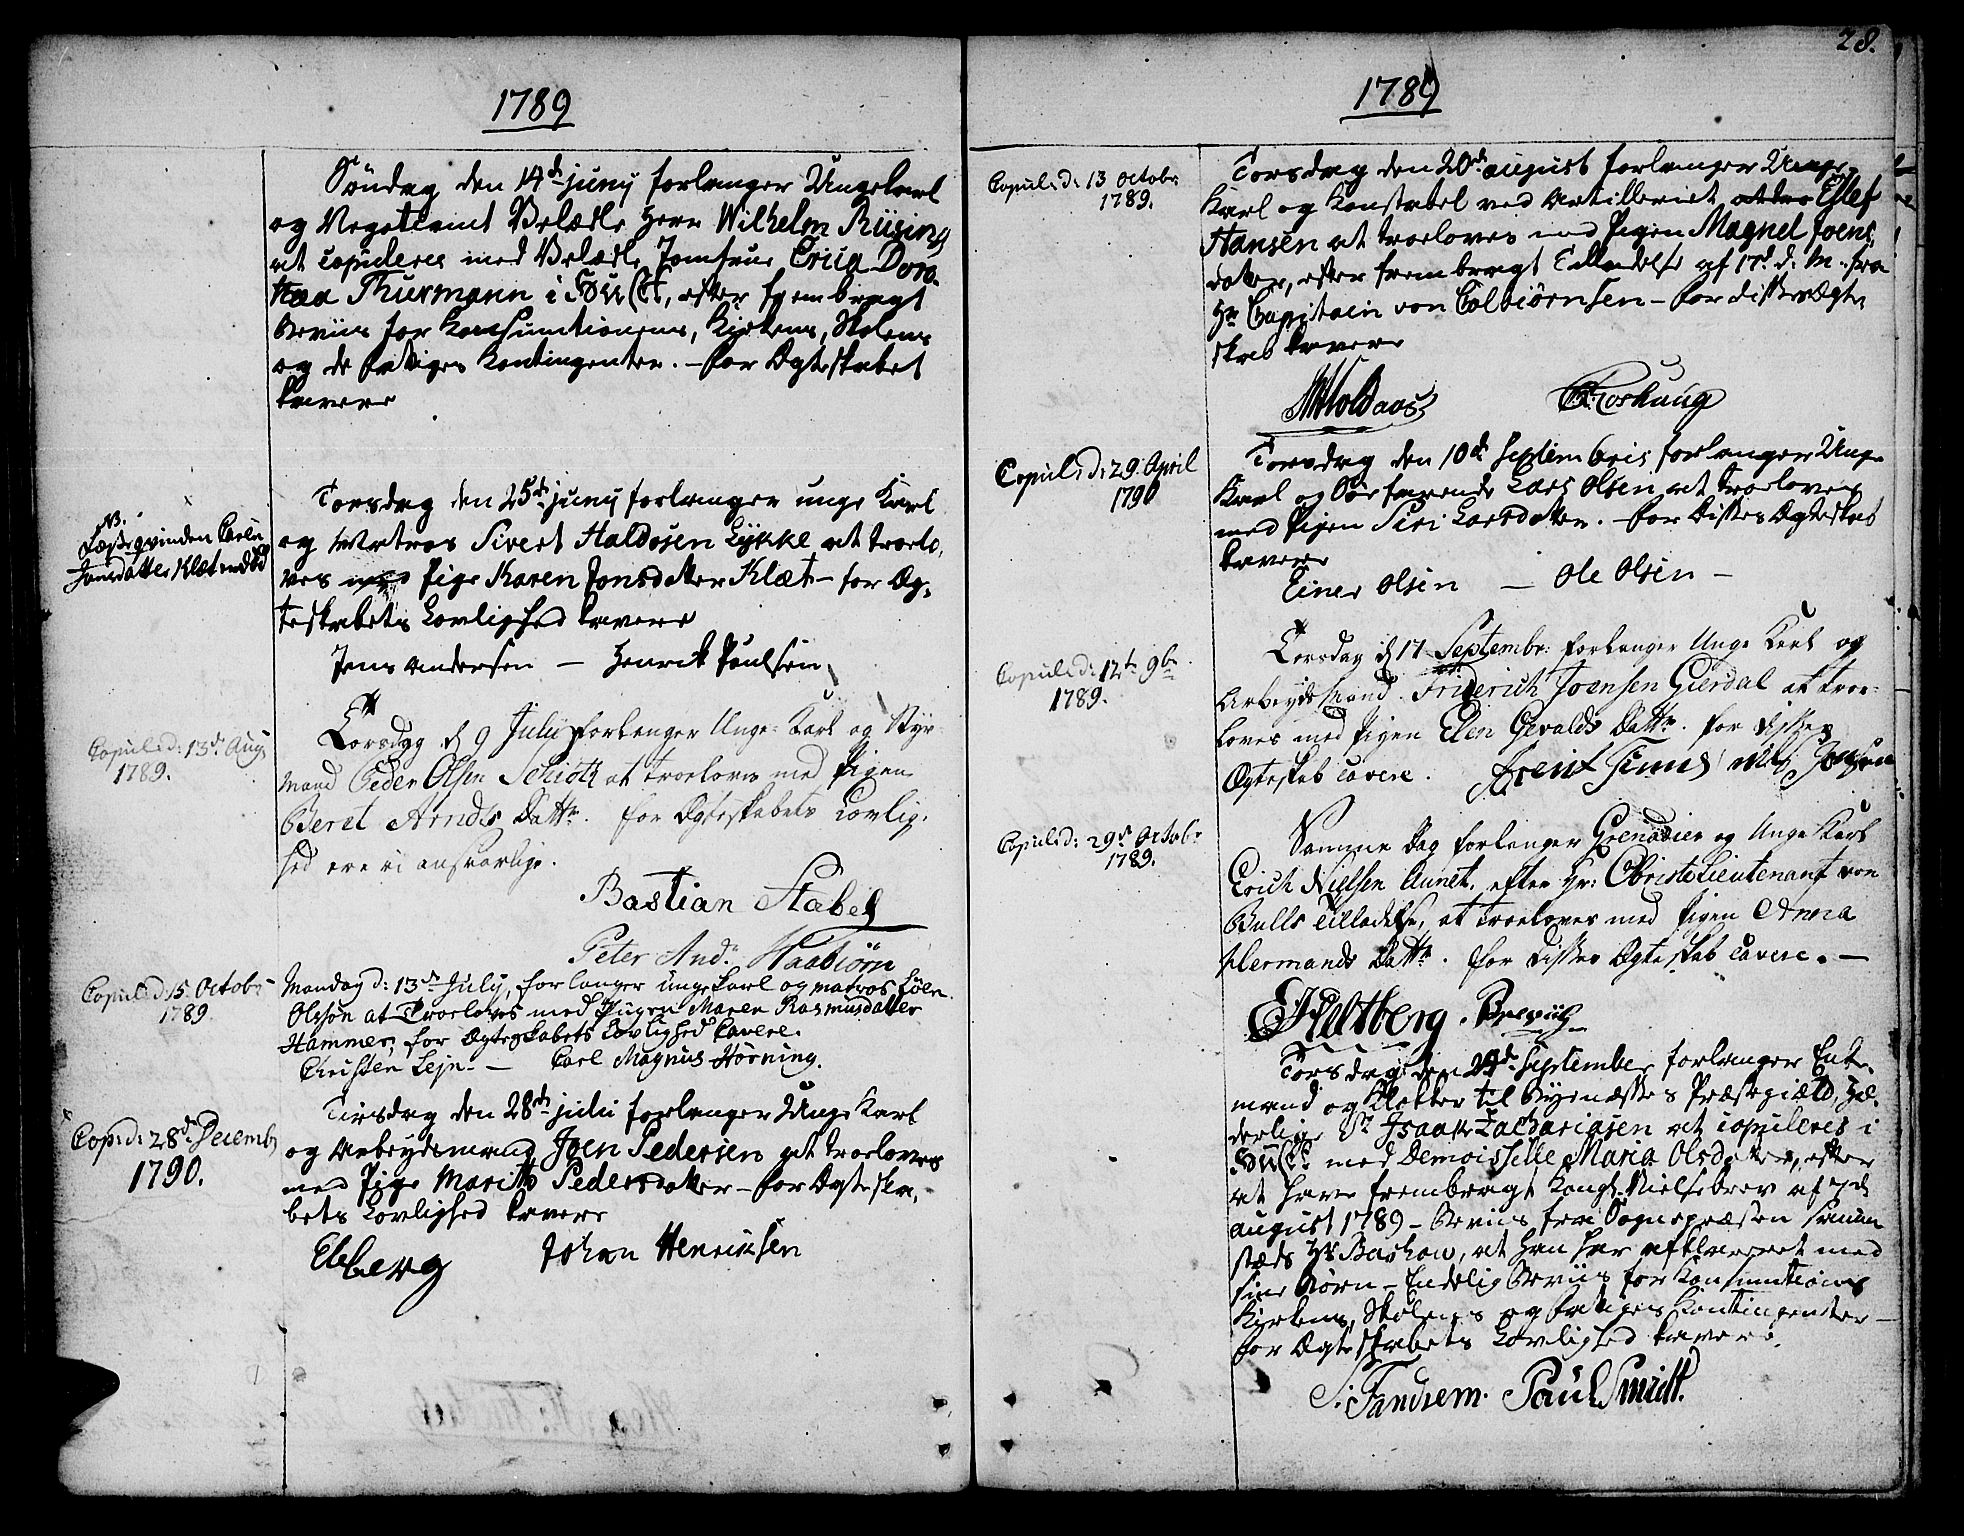 1789
Søndag den 14de juny forlanger Ungekarl
og Negotiant Velædle Herr Wilhelm Rüsing
at copuleres med Velædle Jomfrue Erica Doro-
thea Thurmann i Huuset, efter frembragt
Beviis for Konsumtionens, Kirkens, Skolens
og de Fattiges Kontingenter. - for Ægteskabet
kavere
NB.
Karen
Jonsdatter Klæt
Torsdag den 25de juny forlanger unge Karl
og Matros Sivert Haldosen Lykke at troelo-
ves med Pige Karen Jonsdatter Klæt - for Æg-
teskabets Lovlighed kavere
Jens Andersen - Henrik Paulsen
Copul. d: 13de Aug.
1789.
Torsdag d 9 Julii forlanger Unge-Karl og Styr-
mand Peder Olsen Schiøth at troeloves med Pigen
Beret Arnds Dattr. for Ægteskabets Lovlig-
hed ere vi ansvarlige.
Bastian Stabel
Peter And: Haabiørn
Copul. d. 15. Octobr
1789
Mandag d: 13de July, forlanger ungekarl og matros Joen
Olsøn at Troeloves med Piigen Maren Rasmusdatter
Hammer, for Ægteskabets Lovlighed kavere.
Christen Lejn. - Carl Magnus Hørning.
Cop. d: 28de Decembr
1790.
Tirsdag den 28de julii forlanger Unge Karl
og Arbeydsmand Joen Pedersen at troeloves
med Pige Marith Pedersdatter - for Ægteska-
bets Lovlighed kavere
Ebberg Johan Henriksen
28.
1789
Copul. d: 13 Octobr
1789.
Torsdag den 20de august forlanger Unge
Karl og Konstabel ved Artilleriet Ellef
Hansen at troeloves med Pigen Magnel Joens-
datter, efter frembragt Tilladelse af 17de d: M. fra
Hr Capitain von Colbiørnsen - for disses Ægte
skab kavere
Copul. d: 29. April
1790
Torsdag den 10de Septembris forlanger Unge
Karl og Søefarende Lars Olsen at troeloves
med Pigen Siri Larsdatter. - for disses Ægteskab
kavere
Einer Olsen - Ole Olsen -
Copul. d: 12te 9br.
1789.
Torsdag d 17 Septembr: forlanger Unge Karl og
Arbeydsmand Friderich Joensen Gierdal at troe-
loves med Pigen Elen Gevalds Dattr. for disses
Ægteskab cavere.
Copul. d: 29de Octobr
1789.
Samme Dag forlanger Grenadier og Unge Karl
Erich Nielsen Aunet, efter Hr: Obristelieutenant von
Bulls Tilladelse, at troeloves med Pigen Anna
Hermands Dattr. for disses Ægteskab cavere. -
Heltberg. Brevig
Torsdag den 24de September forlanger Enke-
mand og Klokker til Bynæssets Præstegield, Hæ-
derlige Sr Isaak Zachariasen at copuleres i
Huuset med Demoisselle Maria Olsdatter, efter
at have frembragt Kongl. Vielsebrev af 7de
august 1789 - Beviis fra Sognepræsten samme-
stæds Hr Baskow, at han har afklareret med
sine Børn - Endelig Beviis for Konsumtions
Kirkens, Skolens og Fattiges Kontingenter -
for Ægteskabets Lovlighed kavere.
S: Tandsem. Paul Smidt.